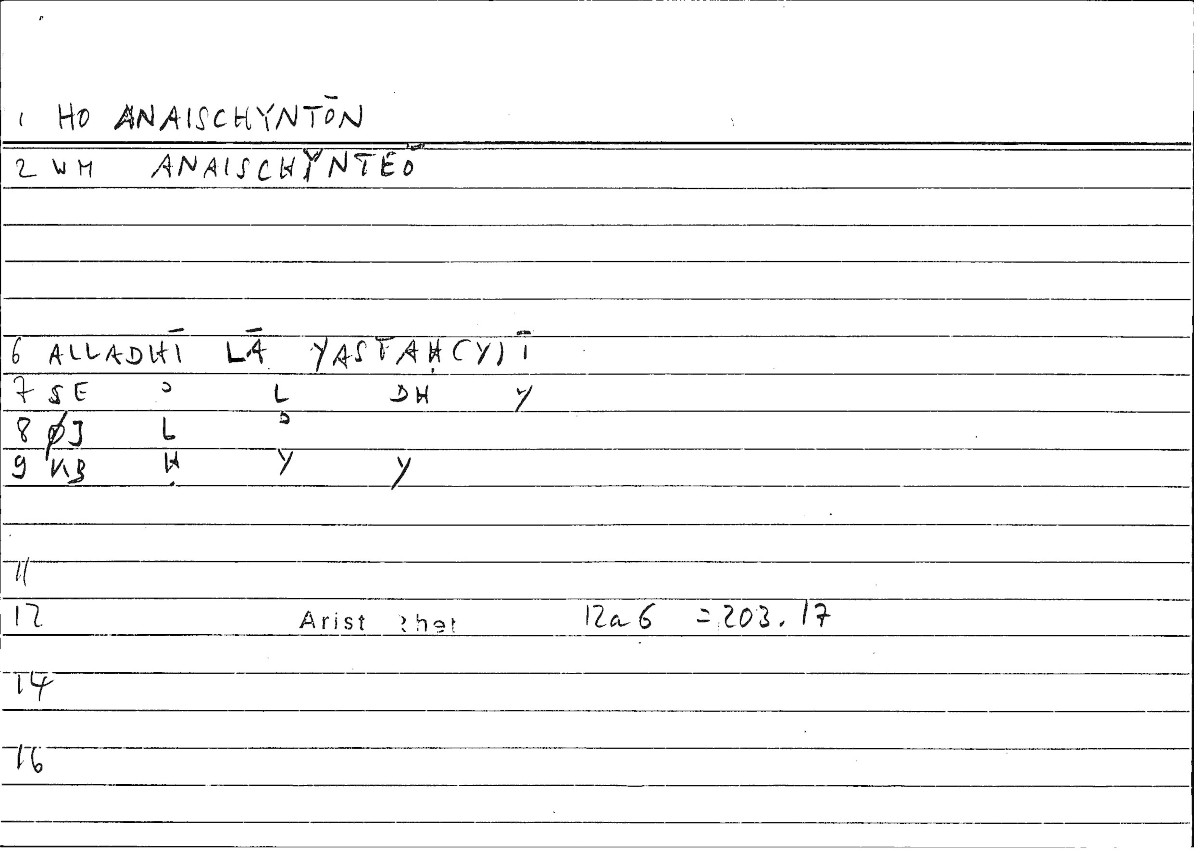 1 HO ANAISCHYNTŌN
2 WM ANAISCHYNTEŌ
6 ALLADHĪ LĀ YASTAḤ(Y)Ī
7 SE ʾ L DH Y
8 ØJ L ʾ
9 KB Ḥ Y Y
11
12 Arist Rhet 12a6 = 203.17
14
16